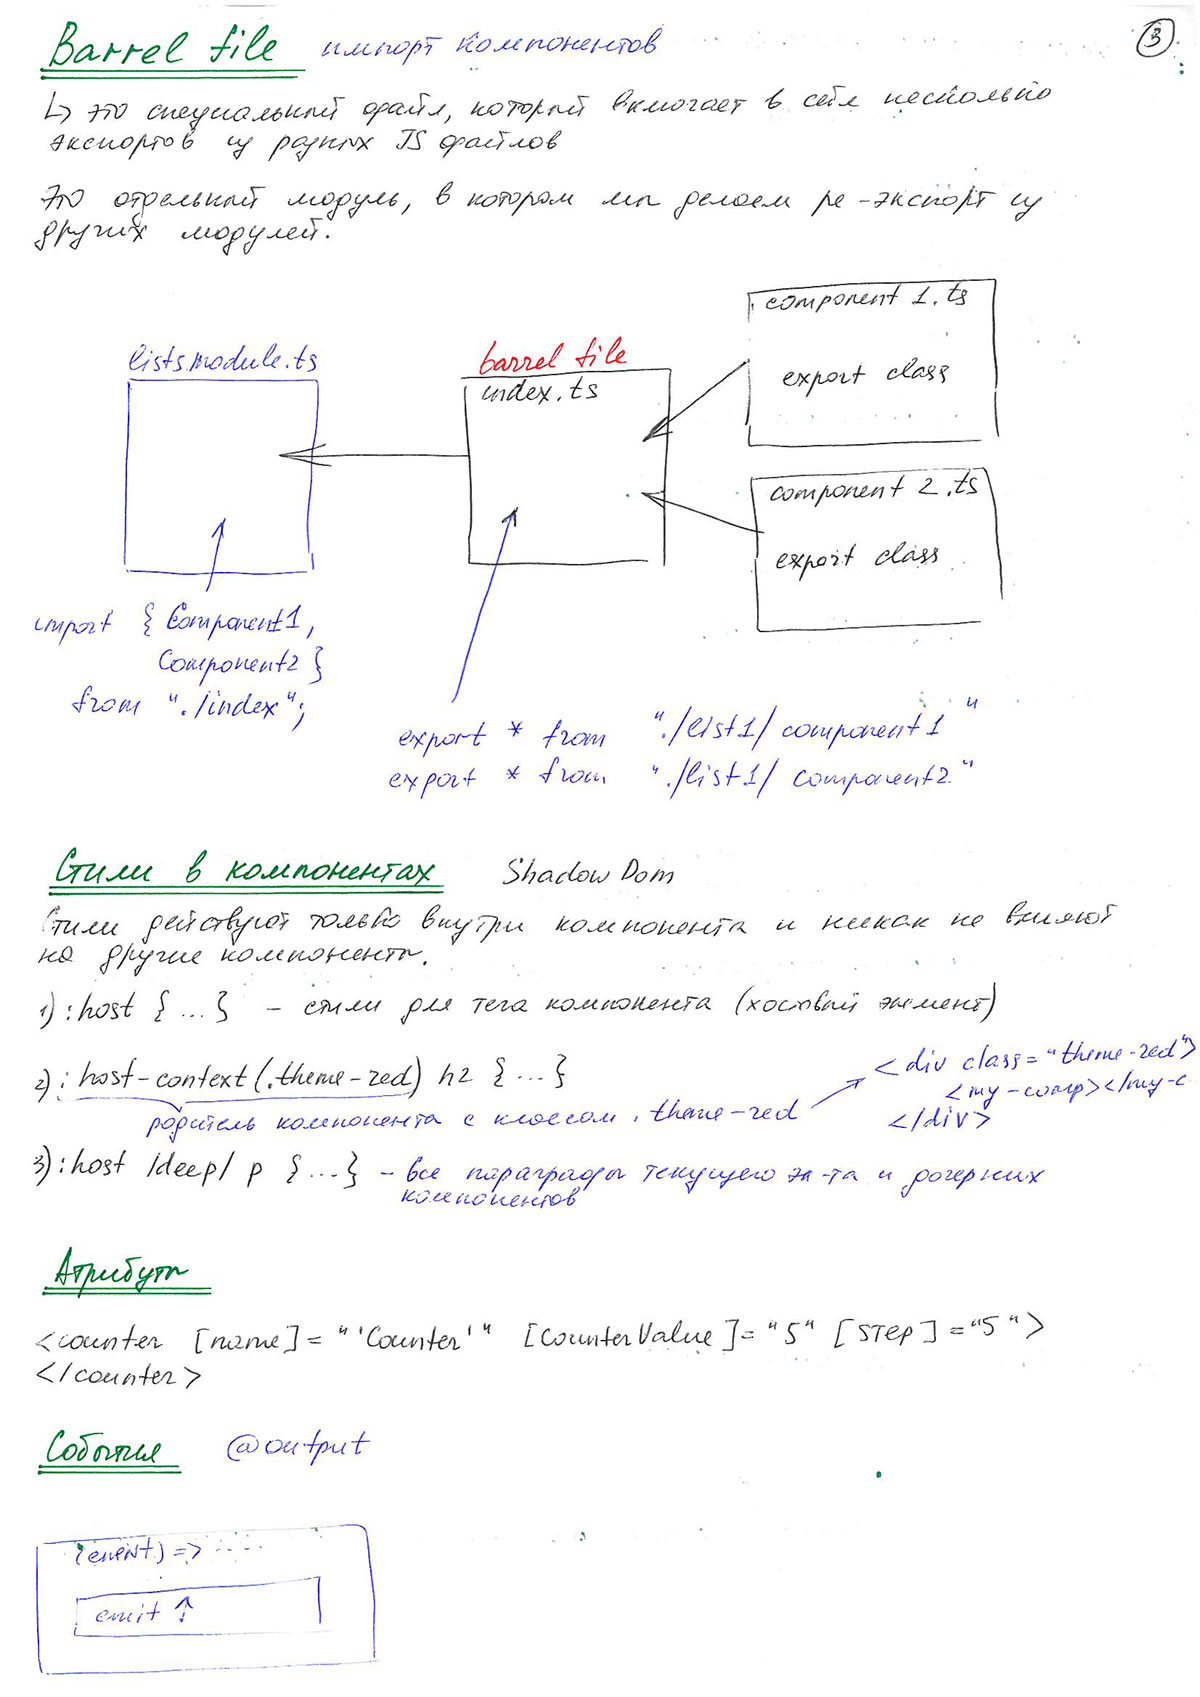 Barrel file импорт компонентов
3
↳ это специальный файл, который включает в себя несколько
экспортов из разных JS файлов
Это отдельный модуль, в котором мы делаем ре-экспорт из
других модулей.
component 1.ts
export class
lists.module.ts
barrel file
index.ts
component 2.ts
export class
import { Component1,
Component2 }
from "./index";
export * from "./list1/component1"
export * from "./list1/component2"
Стили в компонентах Shadow Dom
Стили действуют только внутри компонента и никак не влияют
на другие компоненты.
1) :host {...} - стили для тега компонента (хостовый элемент)
2) :host-context(.theme-red) h2 {...}
родитель компонента с классом .theme-red
<div class="theme-red">
<my-comp></my-c
</div>
3) :host /deep/ p {...} - все параграфы текущего эл-та и дочерних
компонентов
Атрибуты
<counter [name]="'Counter'" [CounterValue]="5" [STEP]="5">
</counter>
События @output
(event) => ....
emit ↑